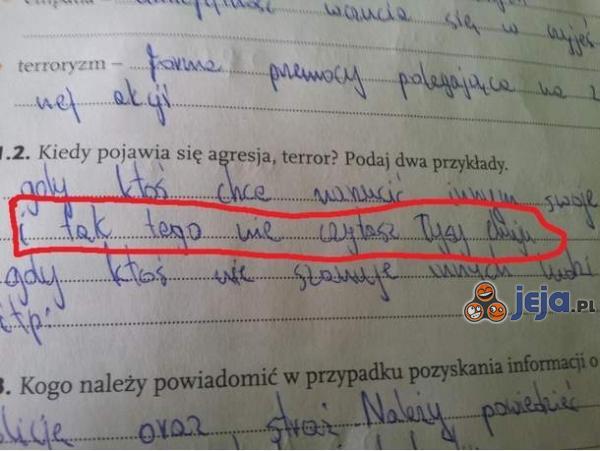 wczucia się w czyjeś
terroryzm – forma przemocy polegająca na z
nej akcji
1.2. Kiedy pojawia się agresja, terror? Podaj dwa przykłady.
gdy ktoś chce narzucić innym swoje
i tak tego nie czytasz łysy
gdy ktoś nie szanuje innych ludzi
itp.
jeja.pl
3. Kogo należy powiadomić w przypadku pozyskania informacji o
licję oraz straż Należy powiedzieć